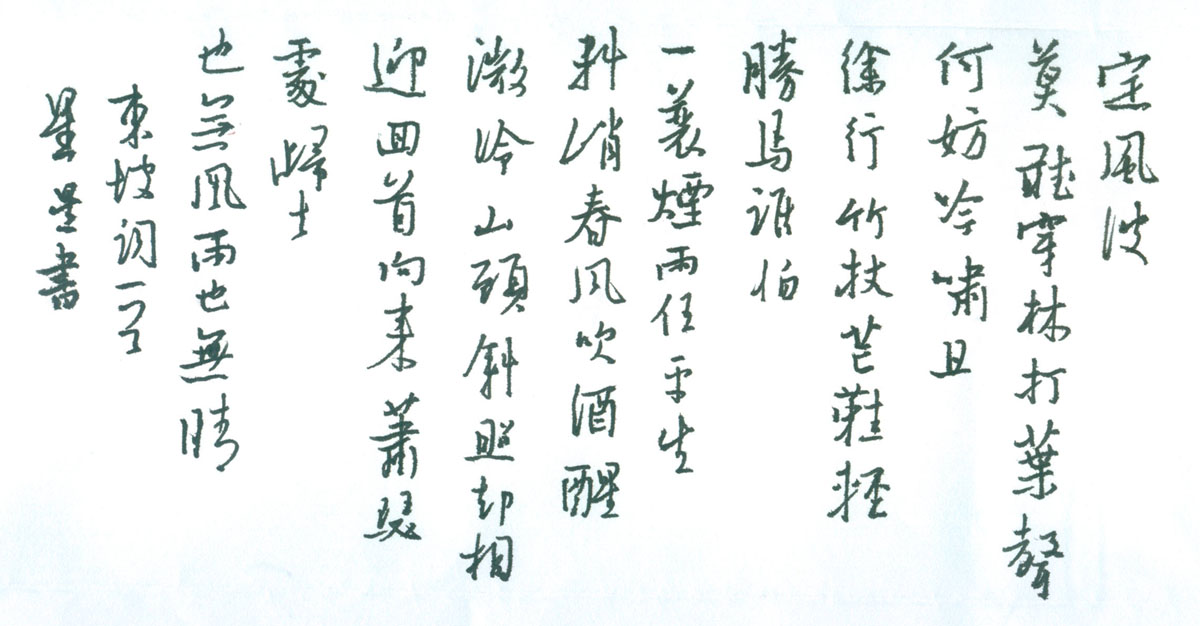 定風波
莫聽穿林打葉聲
何妨吟嘯且
徐行竹杖芒鞋輕
勝馬誰怕
一蓑煙雨任平生
料峭春風吹酒醒
微冷山頭斜照却相
迎回首向来蕭瑟
處歸去
也無風雨也無晴
東坡詞一
星星書